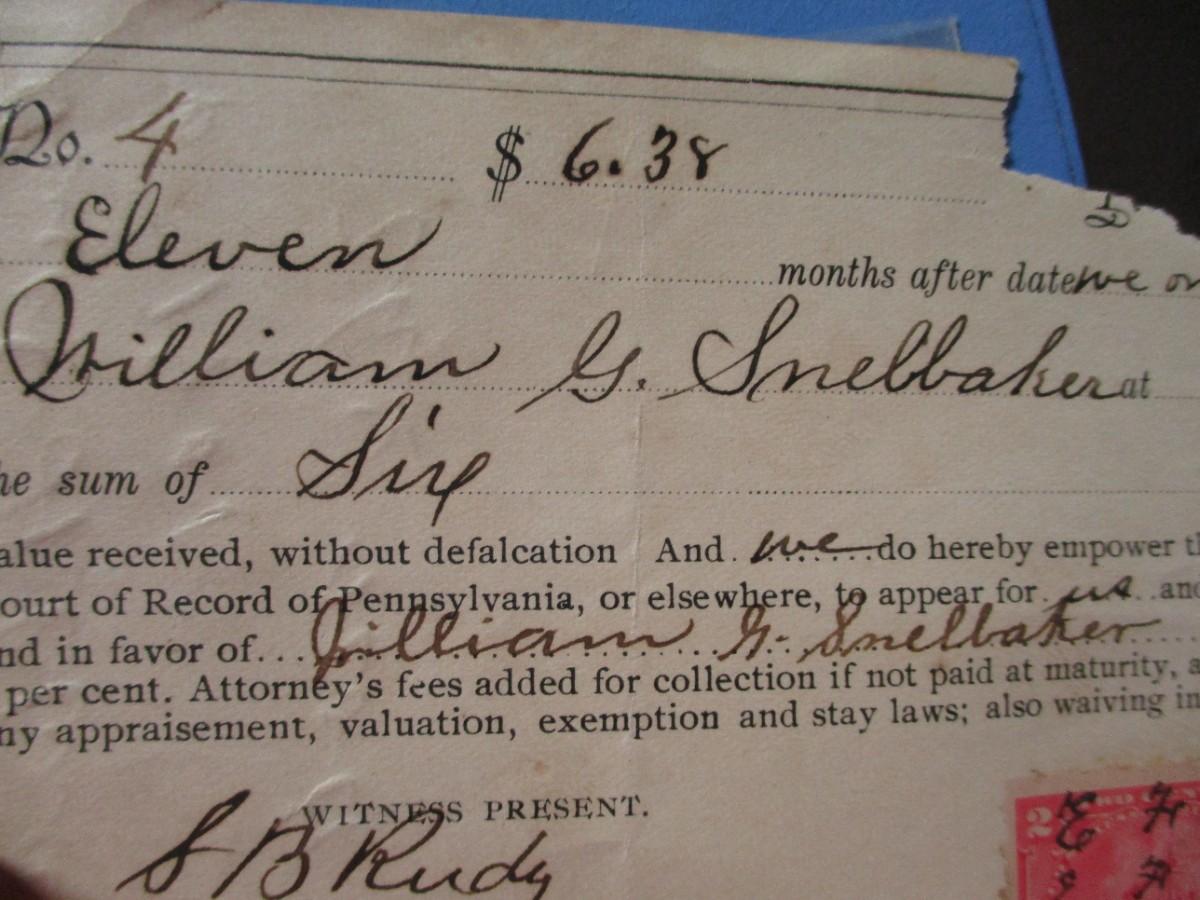 No. 4 $ 6.38
Eleven months after date we or
William G. Snelbaker at
he sum of Six
alue received, without defalcation And we do hereby empower th
ourt of Record of Pennsylvania, or elsewhere, to appear for us and
nd in favor of William G. Snelbaker
per cent. Attorney's fees added for collection if not paid at maturity, a
ny appraisement, valuation, exemption and stay laws; also waiving in
WITNESS PRESENT.
S B Rudy
2